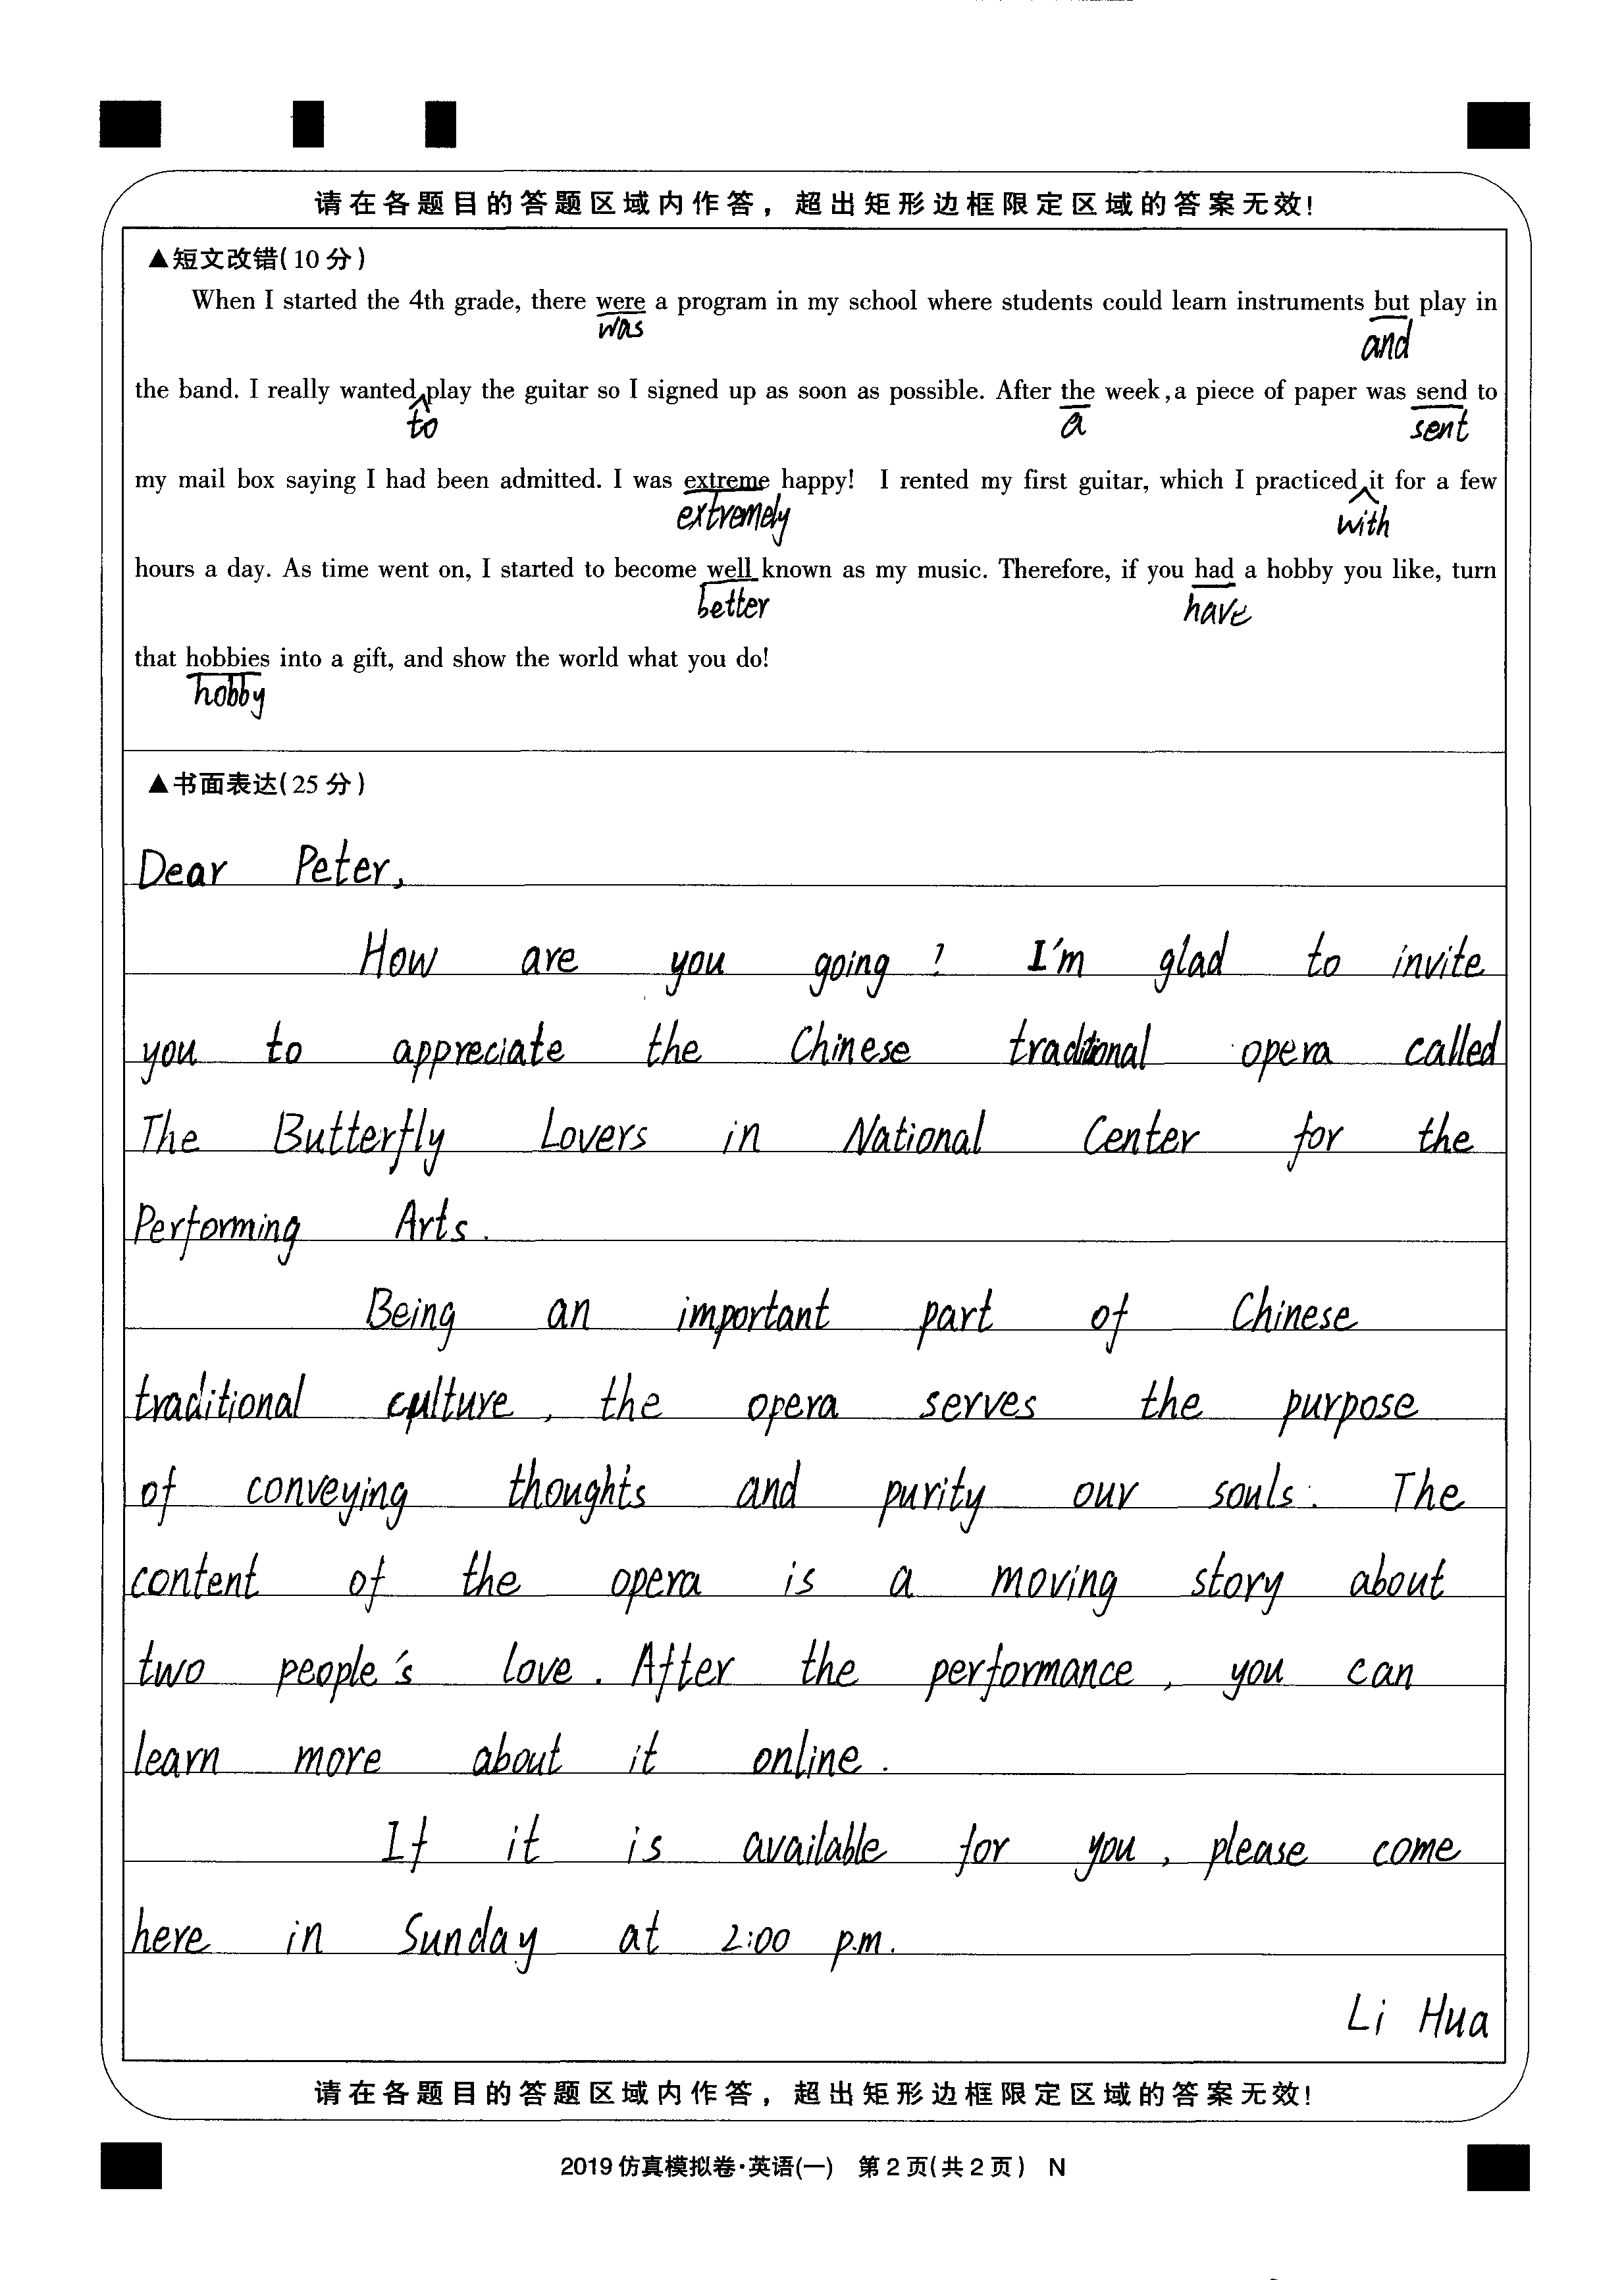 请在各题目的答题区域内作答，超出矩形边框限定区域的答案无效!
▲短文改错(10分)
When I started the 4th grade, there were a program in my school where students could learn instruments but play in
was and
the band. I really wanted play the guitar so I signed up as soon as possible. After the week, a piece of paper was send to
to a sent
my mail box saying I had been admitted. I was extreme happy! I rented my first guitar, which I practiced it for a few
extremely with
hours a day. As time went on, I started to become well known as my music. Therefore, if you had a hobby you like, turn
better have
that hobbies into a gift, and show the world what you do!
hobby
▲书面表达(25分)
Dear Peter,
How are you going? I'm glad to invite
you to appreciate the Chinese traditional opera called
The Butterfly Lovers in National Center for the
Performing Arts.
Being an important part of Chinese
traditional culture, the opera serves the purpose
of conveying thoughts and purity our souls. The
content of the opera is a moving story about
two people's love. After the performance, you can
learn more about it online.
If it is available for you, please come
here in Sunday at 2:00 p.m.
Li Hua
请在各题目的答题区域内作答，超出矩形边框限定区域的答案无效!
2019仿真模拟卷·英语(一) 第2页(共2页) N